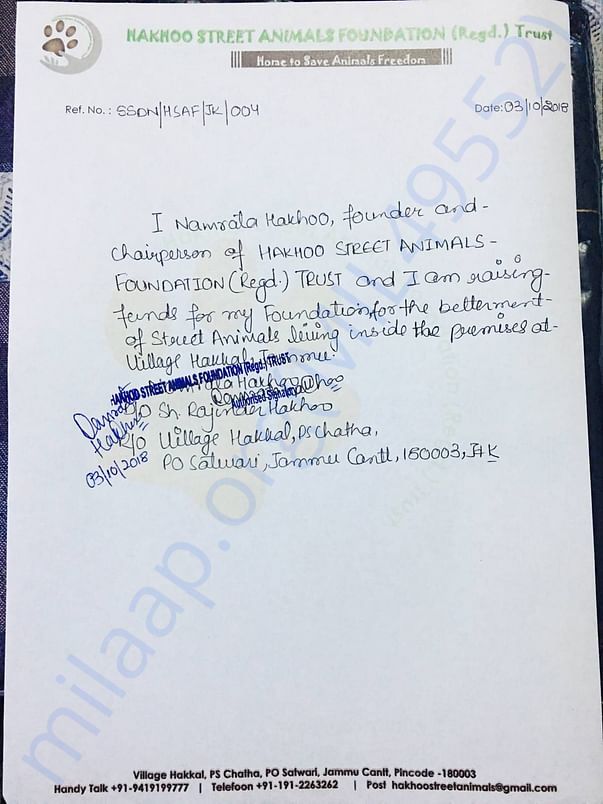 HAKHOO STREET ANIMALS FOUNDATION (Regd.) Trust
Home to Save Animals Freedom
Ref. No.: SSDN/HSAF/JK/004 Date: 03/10/2018
I Namrata Hakhoo, founder and-
Chairperson of HAKHOO STREET ANIMALS-
FOUNDATION (Regd.) TRUST and I am raising-
funds for my Foundation for the betterment-
of Street Animals living inside the premises at-
Village Hakkal, Jammu.
HAKHOO STREET ANIMALS FOUNDATION (Regd.) TRUST
Hakhoo
Authorised Signatory
D/O Sh. Rajinder Hakhoo
R/O Village Hakkal, PS Chatha,
PO Satwari, Jammu Cantt, 180003, J+K
Hakhoo
03/10/2018
milaap.org
Village Hakkal, PS Chatha, PO Satwari, Jammu Cantt, Pincode -180003
Handy Talk +91-9419199777 | Telefoon +91-191-2263262 | Post hakhoostreetanimals@gmail.com